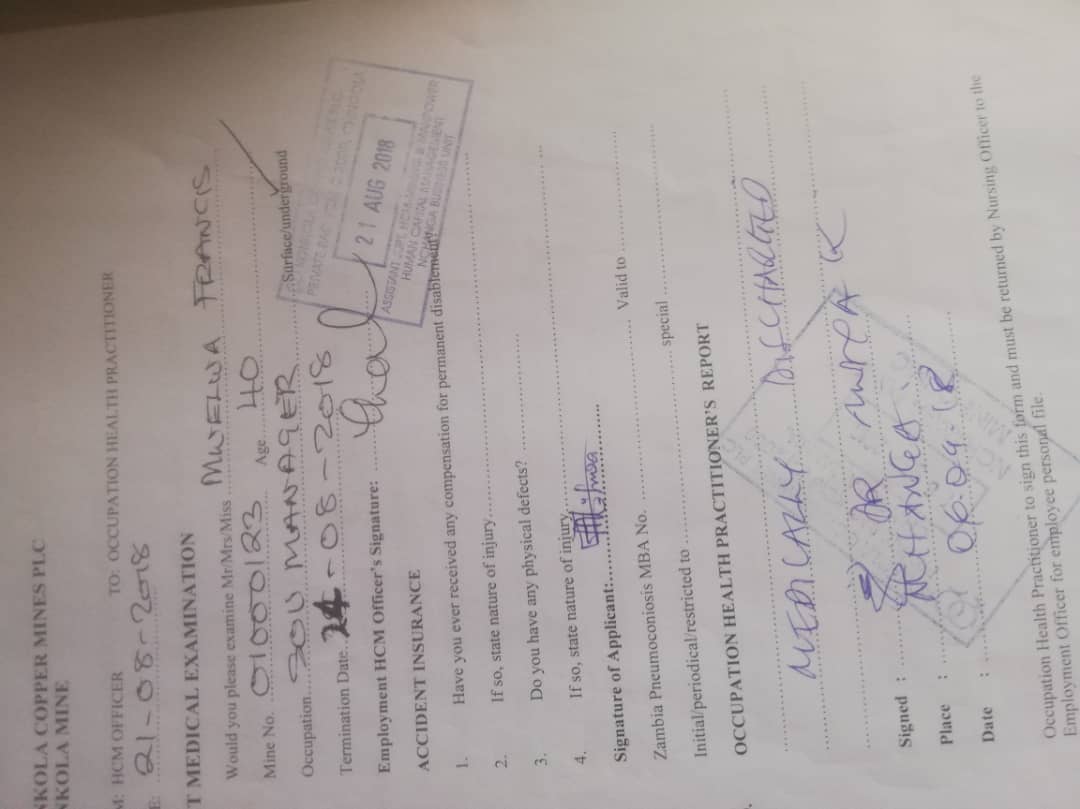 NKOLA COPPER MINES PLC
NKOLA MINE
M: HCM OFFICER TO: OCCUPATION HEALTH PRACTITIONER
E: 21-08-2018
T MEDICAL EXAMINATION
Would you please examine Mr/Mrs/Miss MWELWA FRANCIS
Mine No. 01000123 Age 40
Occupation SOU MANAGER Surface/underground
Termination Date 24-08-2018
Employment HCM Officer's Signature:
21 AUG 2018
HUMAN CAPITAL MANAGEMENT
NCHANGA BUSINESS UNIT
ACCIDENT INSURANCE
1. Have you ever received any compensation for permanent disablement?
2. If so, state nature of injury
3. Do you have any physical defects?
4. If so, state nature of injury
Signature of Applicant:
Zambia Pneumoconiosis MBA No. Valid to
Initial/periodical/restricted to special
OCCUPATION HEALTH PRACTITIONER'S REPORT
MEDICALLY DISCHARGED
Signed : DR
Place :
Date : 06.09.18
Occupation Health Practitioner to sign this form and must be returned by Nursing Officer to the
Employment Officer for employee personal file.